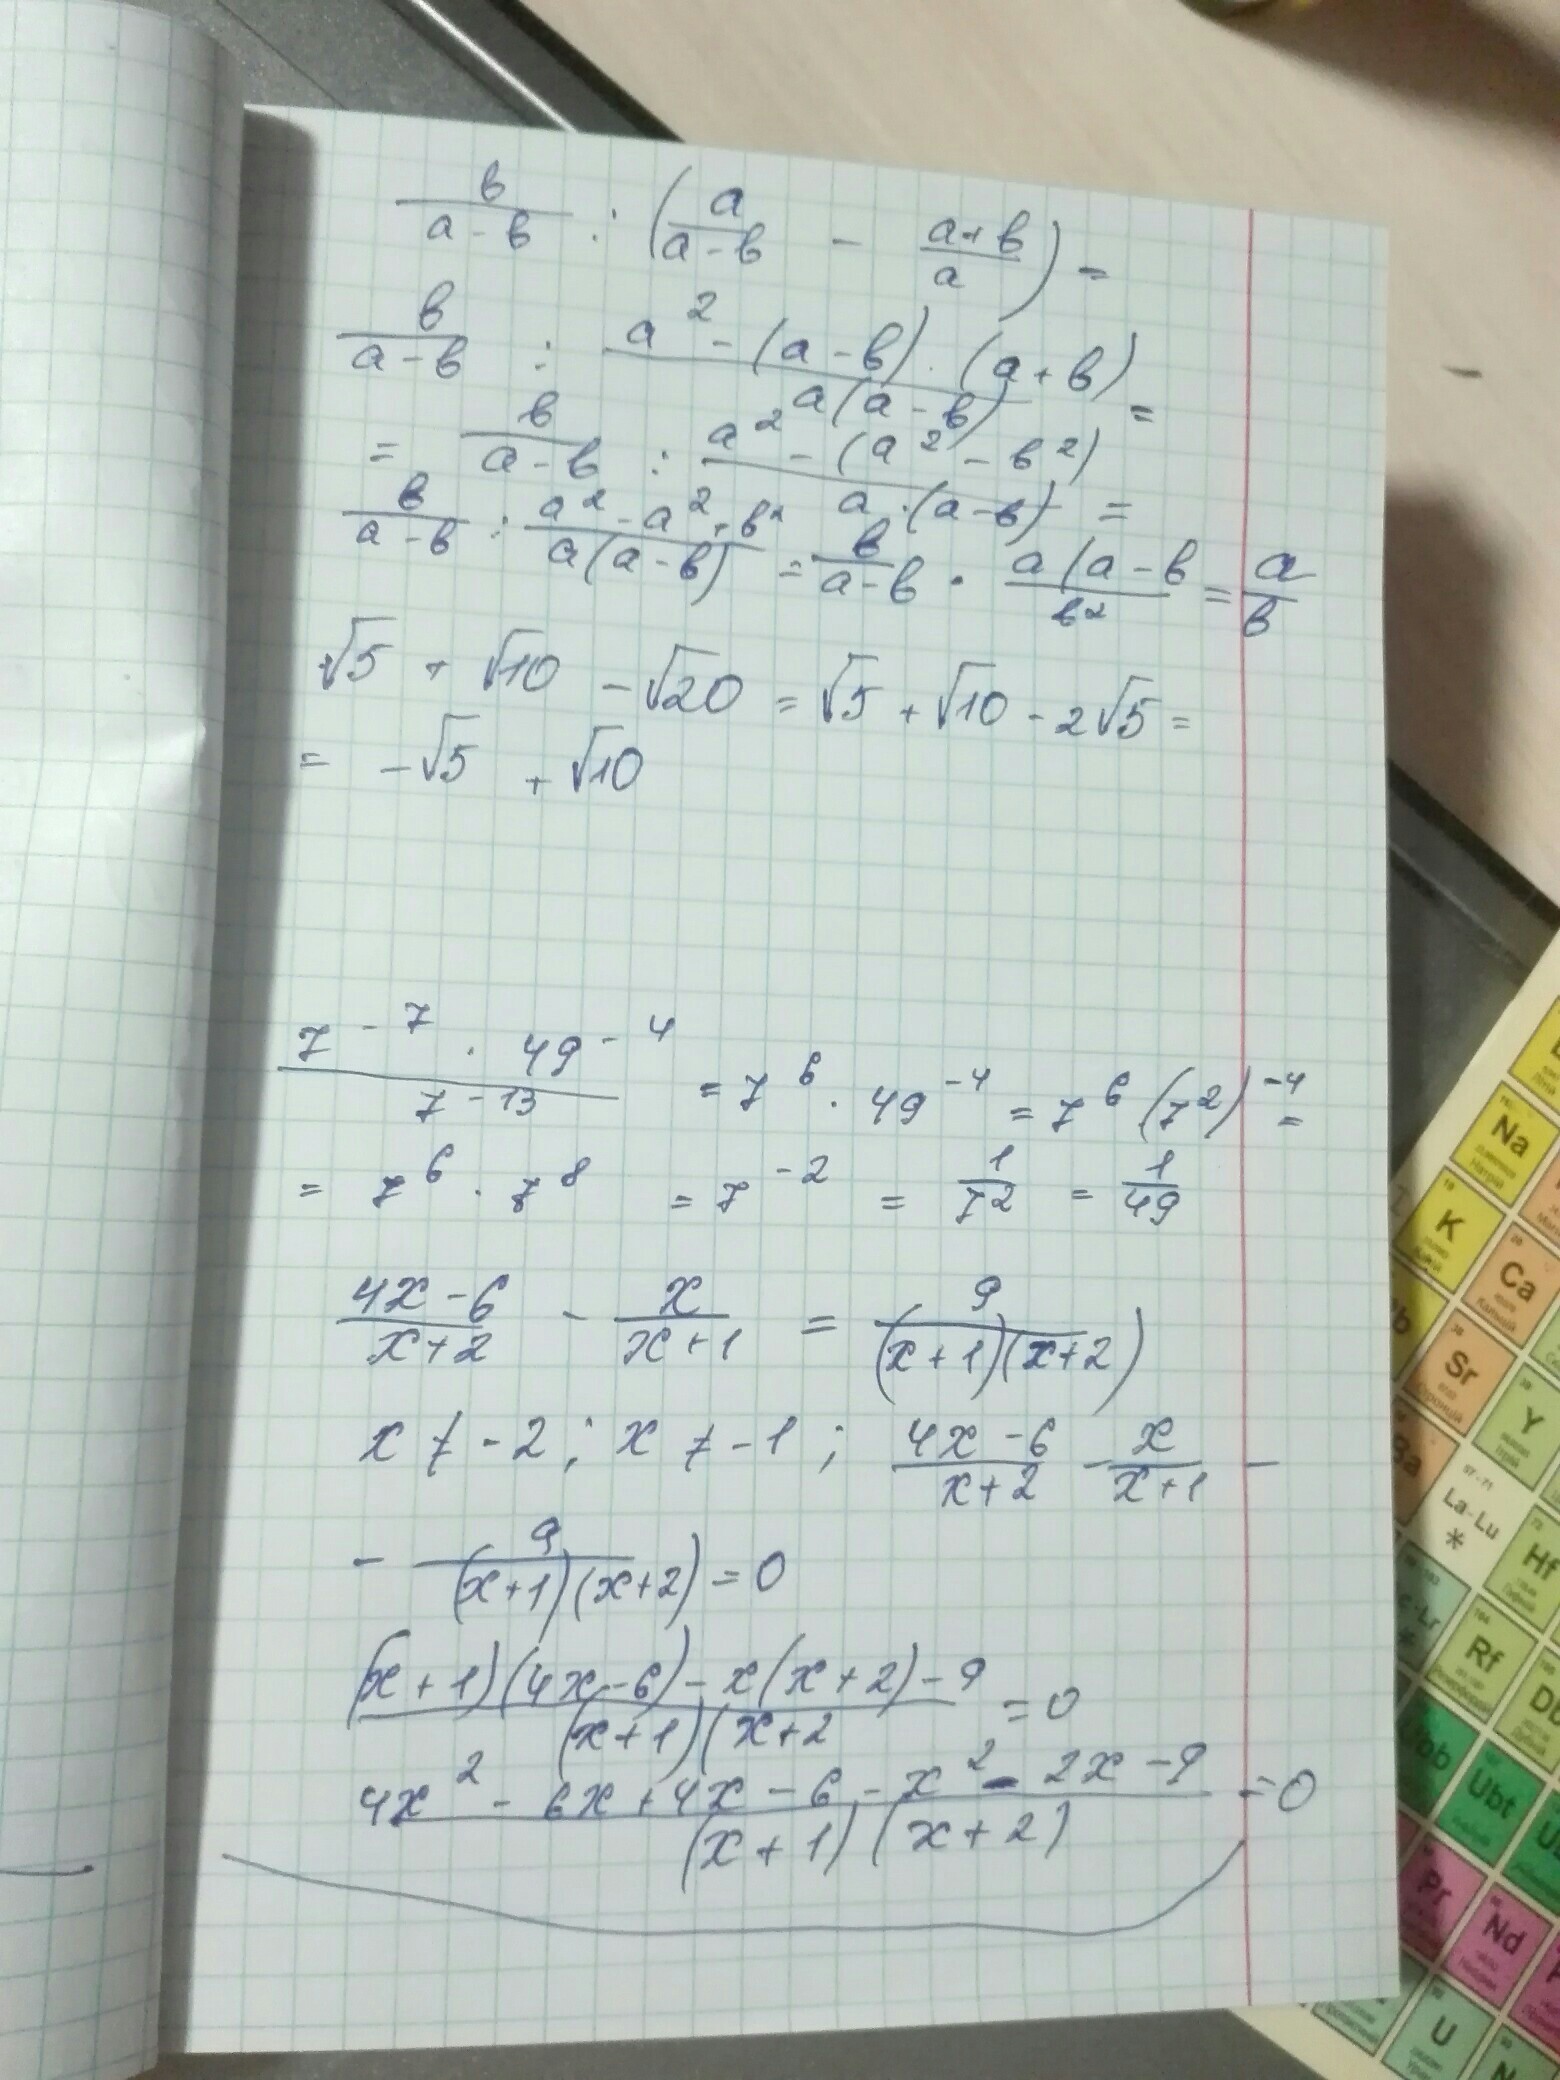 в/(a-в) : (a/(a-в) - (a+в)/a) =
в/(a-в) : (a² - (a-в)·(a+в))/(a(a-в)) =
= в/(a-в) : (a² - (a² - в²))/(a·(a-в)) =
в/(a-в) : (a² - a² + в²)/(a(a-в)) = в/(a-в) · (a(a-в)/в² = a/в
√5 + √10 - √20 = √5 + √10 - 2√5 =
= -√5 + √10
(7⁻⁷ · 49⁻⁴)/7⁻¹³ = 7⁶ · 49⁻⁴ = 7⁶ (7²)⁻⁴ =
= 7⁶ · 7⁸ = 7⁻² = 1/7² = 1/49
(4x-6)/(x+2) - x/(x+1) = 9/((x+1)(x+2))
x ≠ -2 ; x ≠ -1 ; (4x-6)/(x+2) - x/(x+1) -
- 9/((x+1)(x+2)) = 0
((x+1)(4x-6) - x(x+2) - 9)/((x+1)(x+2) = 0
(4x² - 6x + 4x - 6 - x² - 2x - 9)/((x+1)(x+2)) = 0
Na
K
Ca
Sr
Y
La-Lu
*
Hf
Rf
Ubt
Pr
Nd
U